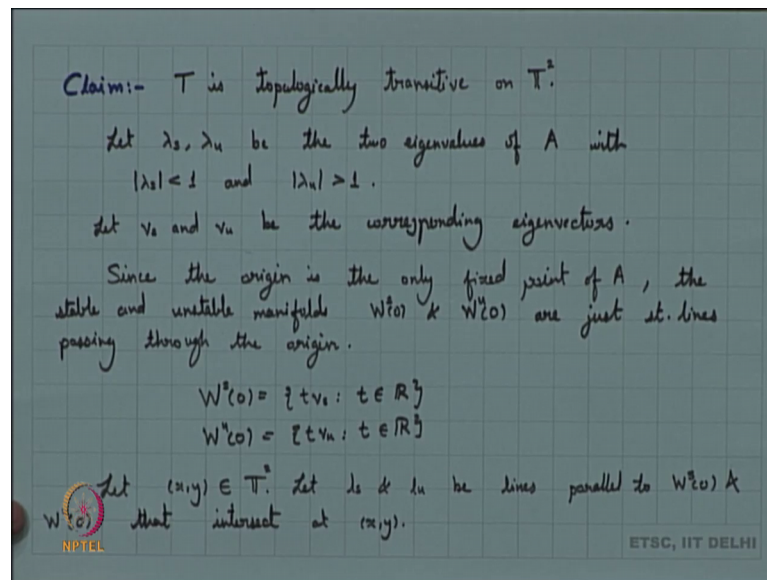 Claim:- T is topologically transitive on 𝕋².
Let λs, λu be the two eigenvalues of A with
|λs| < 1 and |λu| > 1.
Let vs and vu be the corresponding eigenvectors.
Since the origin is the only fixed point of A, the
stable and unstable manifolds Wˢ(0) & Wᵘ(0) are just st. lines
passing through the origin.
Wˢ(0) = {tvs : t ∈ ℝ}
Wᵘ(0) = {tvu : t ∈ ℝ}
Let (x,y) ∈ 𝕋². Let ls & lu be lines parallel to Wˢ(0) &
Wᵘ(0) that intersect at (x,y).
NPTEL
ETSC, IIT DELHI